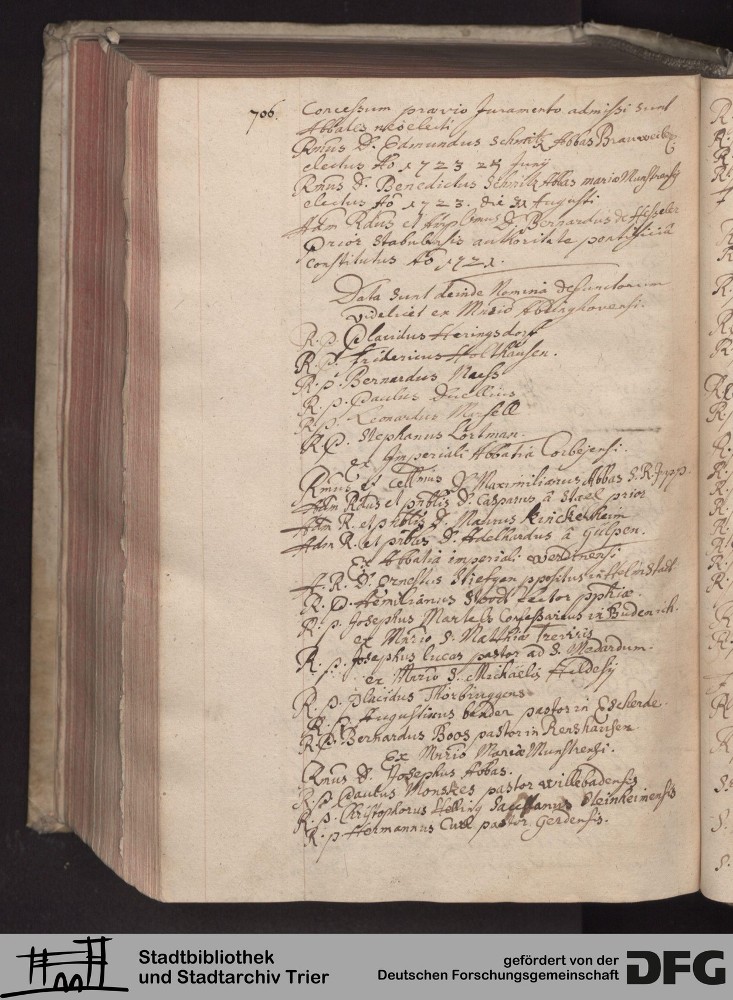 706. Concessum praevio Juramento admissi sunt
Abbates neoelecti
Rmus D. Edmundus Schmitz Abbas Brauweiler
electus Ao 1723 24 Junij
Rmus D. Benedictus Schmitz Abbas mariae Munstrensis
electus Ao 1723. die 31 Augusti
Adm Rdus et Amplmus D. Bernardus de Hesseler
Prior Stabulensis authoritate pontificia
constitutus Ao 1721.
Data sunt deinde Nomina defunctorum
videlicet ex Mrio Abdinghovensi.
R. P. Placidus Heringsdorf
R. P. Fridericus Holthausen.
R. P. Bernardus Naess
R. P. Paulus Duellius
R. P. Leonardus Mersell
R. P. Stephanus Lortman.
ex Imperiali Abbatia Corbejensi.
Rmus et Celsmus D. Maximilianus Abbas S. R. Imp.
Adm Rdus et prblis D. Casparus à Stael prior
Adm R. et prblis D. Maurus Krickelheim
Adm R. et prblis D. Adelhardus à Gulpen.
Ex Abbatia imperiali Werdinensi
A. R. D. Ernestus Stiefgen ppositus in Helmstadt
R. D. Aemilianus Stoodt Lector pphiae.
R. P. Josephus Martels Confessarius in Buderich.
ex Mrio S. Matthiae Treviris
R. P. Josephus Lucas pastor ad S. Medardum.
ex Mrio S. Michaelis Hildesij
R. P. Placidus Thorbruggens
R. P. Augustinus bender pastor in Escherde.
R. P. Bernardus Boos pastor in Renshausen
Ex Mrio Mariae Munstrensi.
Rmus D. Josephus Abbas.
R. P. Paulus Monskes pastor Willebadensis
R. P. Christophorus Helling Sacellanus Steinheimensis
R. P. Hermannus Cull pastor Gerdensis.
Stadtbibliothek
und Stadtarchiv Trier
gefördert von der
Deutschen Forschungsgemeinschaft
DFG